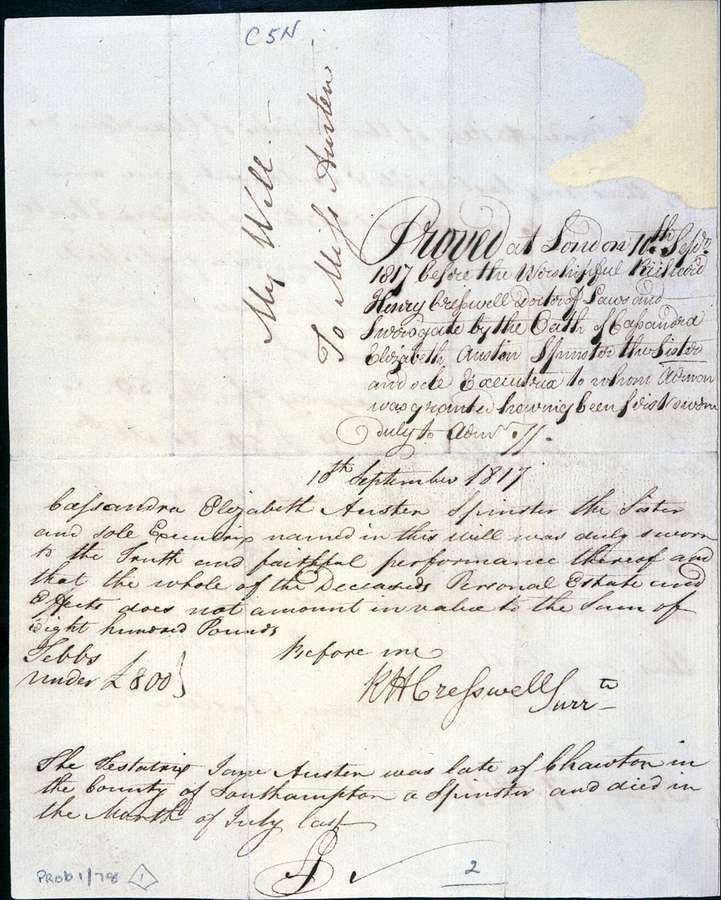 C5N
My Will.—
To Miss Austen
Proved at London 10th Septr.
1817 before the Worshipful Richard
Henry Creswell Doctor of Laws and
Surrogate by the Oath of Casandra
Elizabeth Austin Spinster the Sister
and sole Executrix to whom Admon
was granted having been first sworn
duly to Admr.
10th September 1817
Cassandra Elizabeth Austen Spinster the Sister
and sole Executrix named in this will was duly sworn
to the Truth and faithful performance thereof and
that the whole of the Deceaseds Personal Estate and
Effects does not amount in value to the Sum of
Eight hundred Pounds
Tebbs
under £800}
Before me
RHCresswell
Surrte
The Testatrix Jane Austen was late of Chawton in
the County of Southampton a Spinster and died in
the Month of July last
2
PROB 1/78
1